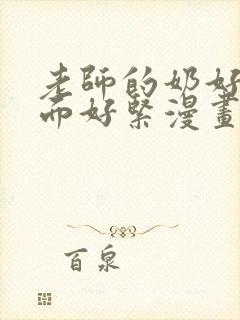 老師的奶好
而好緊漫畫
百泉